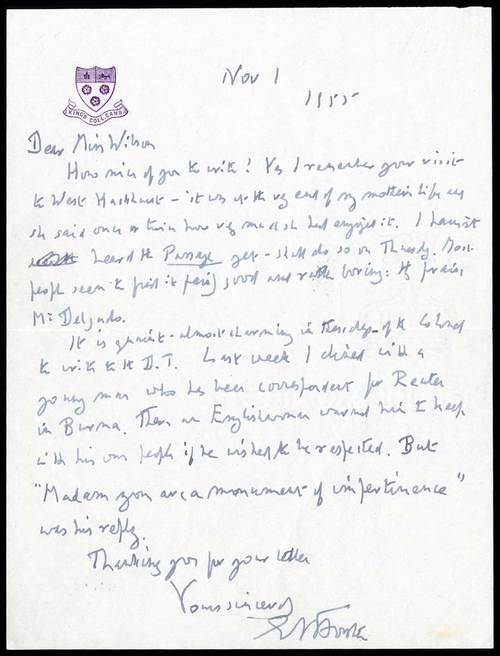 KINGS COLL. CAMB
Nov 1
1955
Dear Miss Wilson
How nice of you to write! Yes I remember your visit
to West Hackhurst – it was at the very end of my mother's life and
she said once or twice how very much she had enjoyed it. I haven't
heard the Passage yet – shall do so on Thursday. Most
people seem to find it fairly good and rather boring: they praise
Mr Delgado.
It is quaint – almost charming in these days – of the Colonel
to write to the D.T. Last week I dined with a
young man who has been correspondent for Reuter
in Burma. There an Englishwoman warned him to keep
with his own people if he wished to be respected. But
"Madam you are a monument of impertinence"
was his reply.
Thanking you for your letter
Yours sincerely
EM Forster